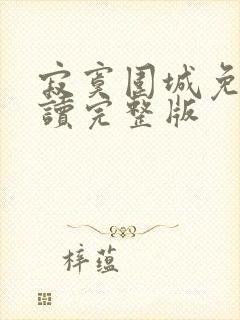 寂寞围城免
讀完整版
梓蕴